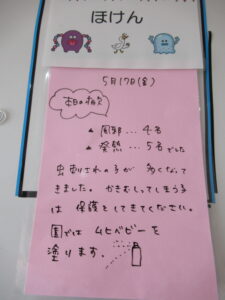 ほけん
5月17日(金)
本日の欠
▲ 風邪 … 4名
▲ 発熱 … 5名でした
虫刺されの子が 多くなって
きました。 かきむしってしまう子
は 保護をしてきてください。
園では ムヒベビーを
塗ります。